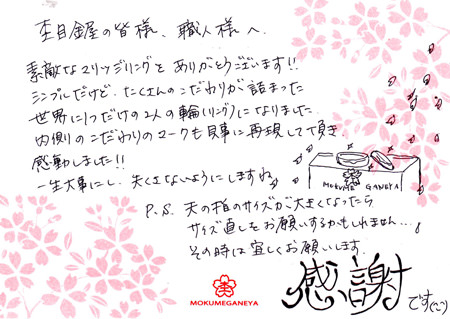 杢目金屋の皆様、職人様へ
素敵なマリッジリングを ありがとうございます!!
シンプルだけど、たくさんのこだわりが詰まった
世界に1つだけの2人の輪(リング)になりました。
内側のこだわりのマークも見事に再現して頂き
感動しました!!
一生大事にし、失くさないようにしますね
MOKUME GANEYA
P.S. 夫の指のサイズが大きくなったら
サイズ直しをお願いするかもしれません…!
その時は宜しくお願いします
感謝です(^^)
MOKUMEGANEYA